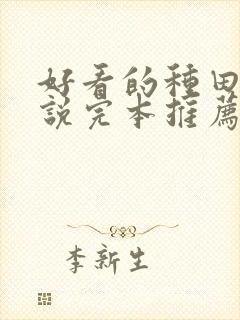 好看的種田
說完本推薦
李新生